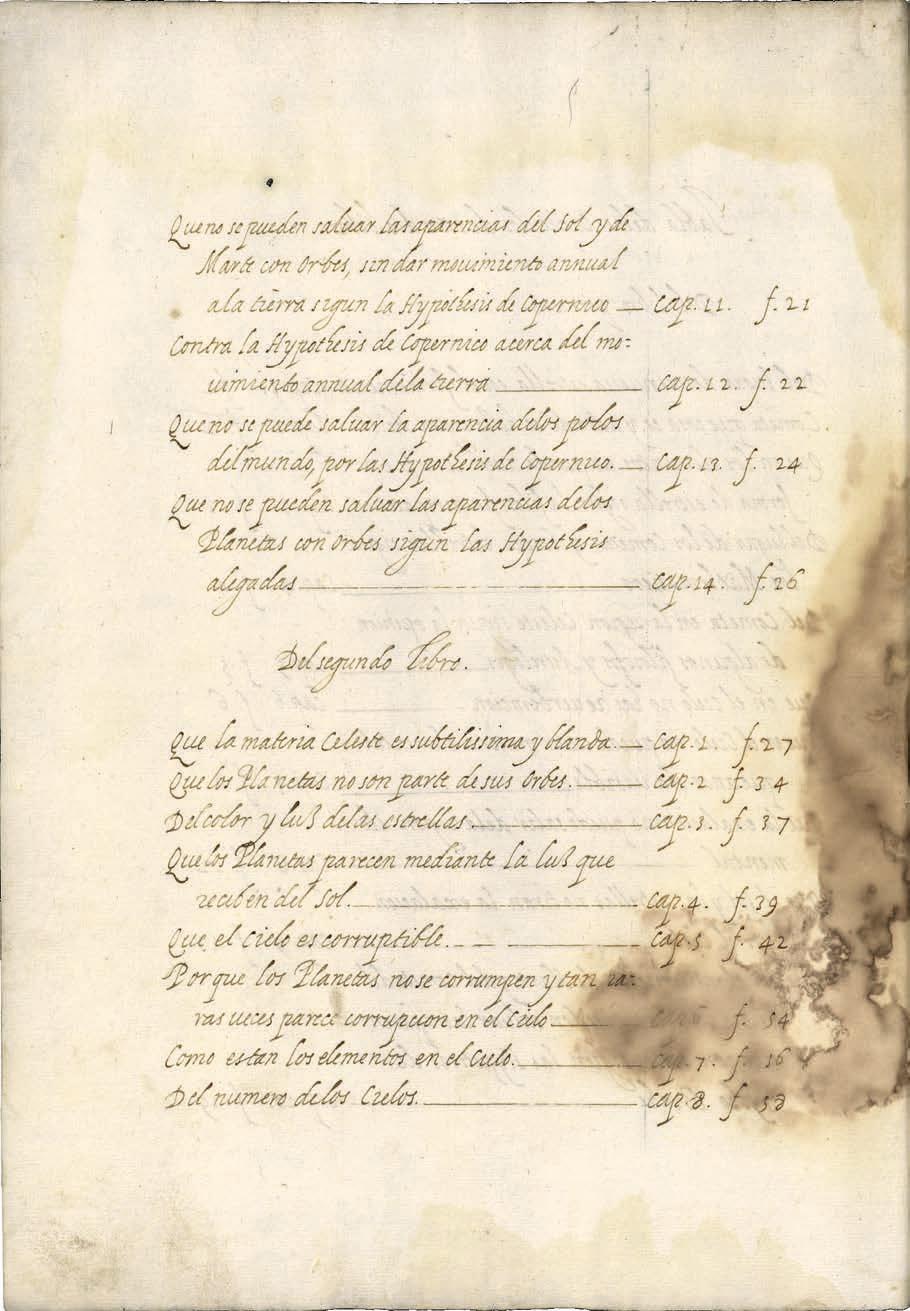 Que no se pueden saluar las aparencias del Sol y de
Marte con Orbes, sin dar mouimiento annual
a la tierra sigun la Hypothesis de Copernico — cap. 11. f. 21
Contra la Hypothesis de Copernico acerca del mo=
uimiento annual de la tierra — cap. 12. f. 22
Que no se puede saluar la aparencia de los polos
del mundo, por las Hypothesis de Copernico. — cap. 13. f. 24
Que no se pueden saluar las aparencias de los
Planetas con orbes sigun las Hypothesis
alegadas — cap. 14. f. 26
Del segundo libro.
Que la materia Celeste es subtilissima y blanda — cap. 1. f. 27
Que los Planetas no son parte de sus Orbes. — cap. 2 f. 34
Del color y luz de las estrellas. — cap. 3. f. 37
Que los Planetas parecen mediante la luz que
reciben del Sol. — cap. 4. f. 39
Que el Cielo es corruptible. — cap. 5 f. 42
Porque los Planetas no se corrumpen y tan ra=
ras ueces parece corrupcion en el Cielo — cap. f. 54
Como estan los elementos en el Cielo. — cap. 7. f. 56
Del numero de los Cielos. — cap. 8. f. 58